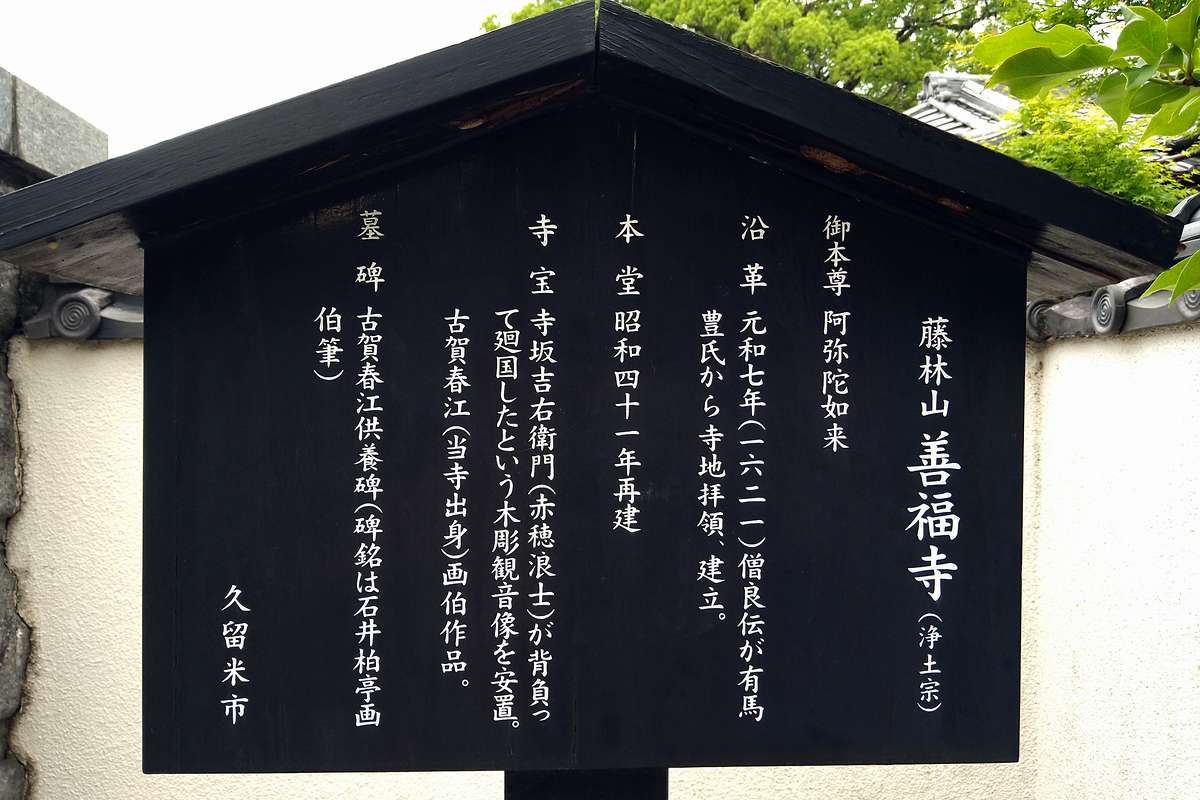 藤林山 善福寺(浄土宗)
御本尊 阿弥陀如来
沿革 元和七年(一六二一)僧良伝が有馬
豊氏から寺地拝領、建立。
本堂 昭和四十一年再建
寺宝 寺坂吉右衛門(赤穂浪士)が背負っ
て廻国したという木彫観音像を安置。
古賀春江(当寺出身)画伯作品。
墓碑 古賀春江供養碑(碑銘は石井柏亭画
伯筆)
久留米市